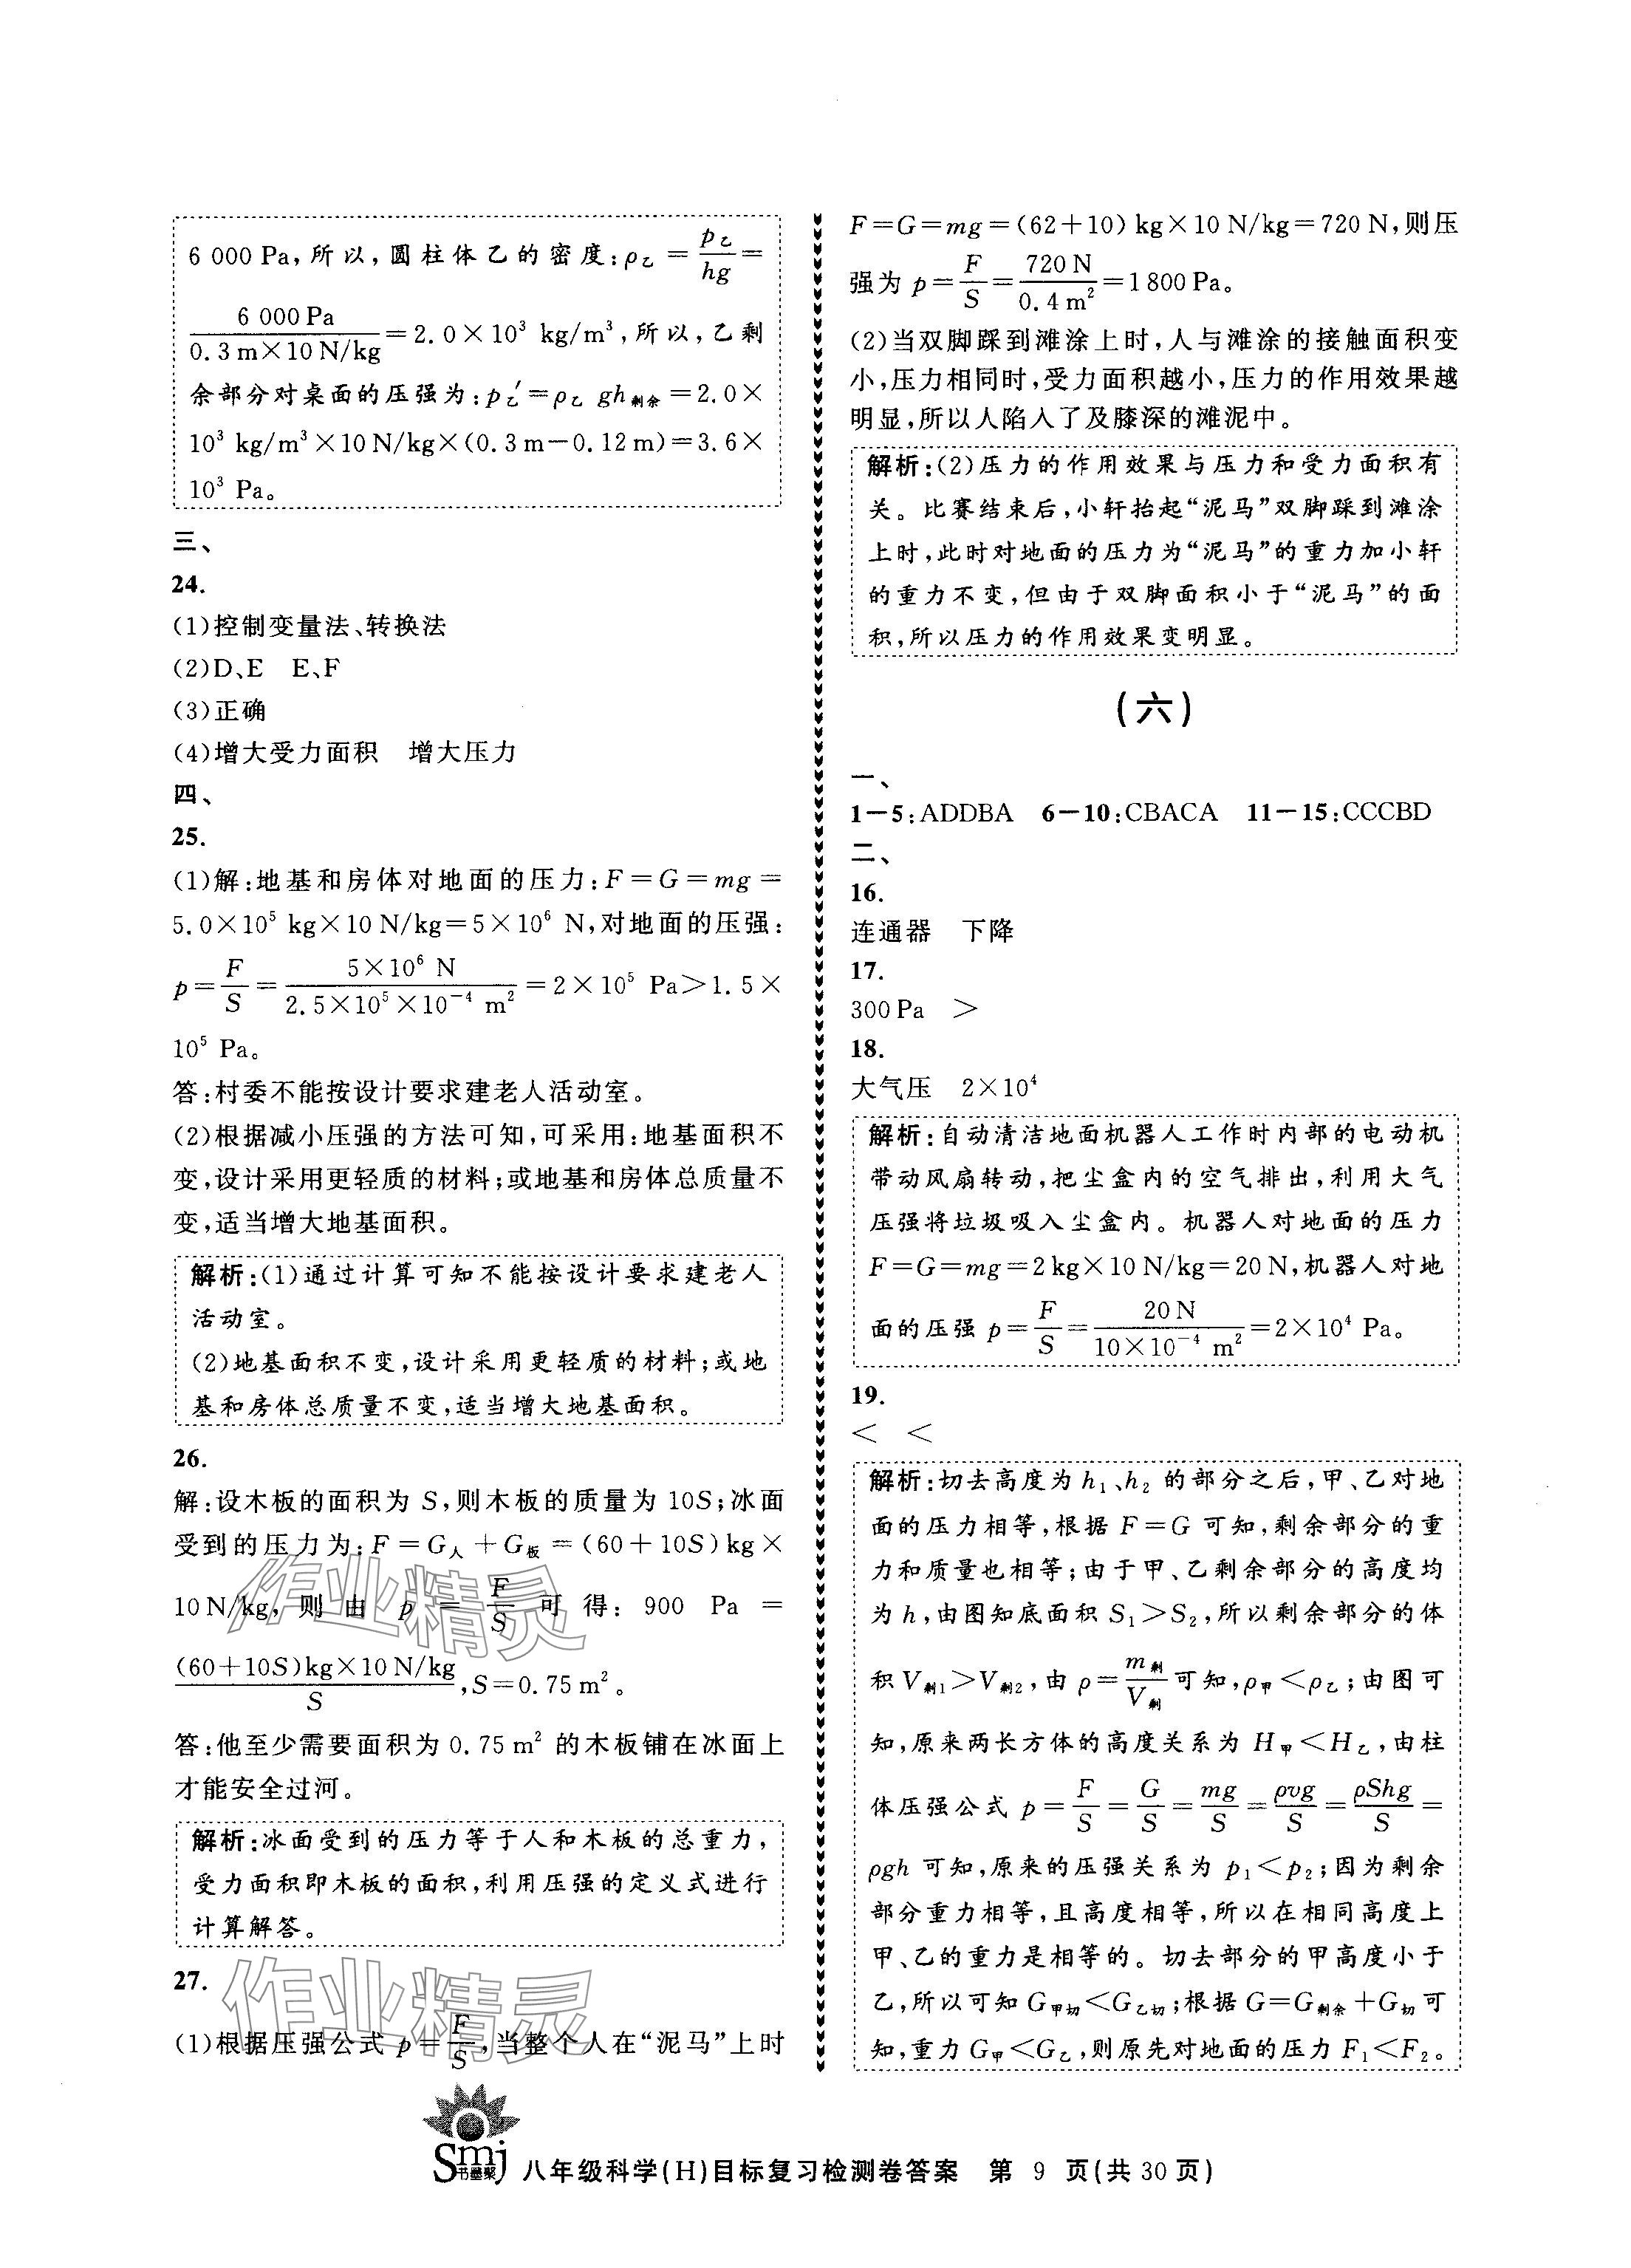 6 000 Pa,所以,圆柱体乙的密度:ρ乙 = p乙/hg =
6 000 Pa/(0.3 m×10 N/kg)=2.0×10³ kg/m³,所以,乙剩
余部分对桌面的压强为:p乙′=ρ乙 gh剩余=2.0×
10³ kg/m³×10 N/kg×(0.3 m−0.12 m)=3.6×
10³ Pa。
三、
24.
(1)控制变量法、转换法
(2)D、E E、F
(3)正确
(4)增大受力面积 增大压力
四、
25.
(1)解:地基和房体对地面的压力:F=G=mg=
5.0×10⁵ kg×10 N/kg=5×10⁶ N,对地面的压强:
p=F/S=5×10⁶ N/(2.5×10⁵×10⁻⁴ m²)=2×10⁵ Pa>1.5×
10⁵ Pa。
答:村委不能按设计要求建老人活动室。
(2)根据减小压强的方法可知,可采用:地基面积不
变,设计采用更轻质的材料;或地基和房体总质量不
变,适当增大地基面积。
解析:(1)通过计算可知不能按设计要求建老人
活动室。
(2)地基面积不变,设计采用更轻质的材料;或地
基和房体总质量不变,适当增大地基面积。
26.
解:设木板的面积为 S,则木板的质量为 10S;冰面
受到的压力为:F=G人+G板=(60+10S)kg×
10 N/kg,则由 p=F/S 可得:900 Pa=
(60+10S)kg×10 N/kg/S,S=0.75 m²。
答:他至少需要面积为 0.75 m² 的木板铺在冰面上
才能安全过河。
解析:冰面受到的压力等于人和木板的总重力,
受力面积即木板的面积,利用压强的定义式进行
计算解答。
27.
(1)根据压强公式 p=F/S,当整个人在“泥马”上时
F=G=mg=(62+10) kg×10 N/kg=720 N,则压
强为 p=F/S=720 N/0.4 m²=1 800 Pa。
(2)当双脚踩到滩涂上时,人与滩涂的接触面积变
小,压力相同时,受力面积越小,压力的作用效果越
明显,所以人陷入了及膝深的滩泥中。
解析:(2)压力的作用效果与压力和受力面积有
关。比赛结束后,小轩抬起“泥马”双脚踩到滩涂
上时,此时对地面的压力为“泥马”的重力加小轩
的重力不变,但由于双脚面积小于“泥马”的面
积,所以压力的作用效果变明显。
(六)
一、
1—5:ADDBA 6—10:CBACA 11—15:CCCBD
二、
16.
连通器 下降
17.
300 Pa >
18.
大气压 2×10⁴
解析:自动清洁地面机器人工作时内部的电动机
带动风扇转动,把尘盒内的空气排出,利用大气
压强将垃圾吸入尘盒内。机器人对地面的压力
F=G=mg=2 kg×10 N/kg=20 N,机器人对地
面的压强 p=F/S=20 N/(10×10⁻⁴ m²)=2×10⁴ Pa。
19.
< <
解析:切去高度为 h₁、h₂ 的部分之后,甲、乙对地
面的压力相等,根据 F=G 可知,剩余部分的重
力和质量也相等;由于甲、乙剩余部分的高度均
为 h,由图知底面积 S₁>S₂,所以剩余部分的体
积 V剩1>V剩2,由 ρ=m剩/V剩 可知,ρ甲<ρ乙;由图可
知,原来两长方体的高度关系为 H甲<H乙,由柱
体压强公式 p=F/S=G/S=mg/S=ρvg/S=ρShg/S=
ρgh 可知,原来的压强关系为 p₁<p₂;因为剩余
部分重力相等,且高度相等,所以在相同高度上
甲、乙的重力是相等的。切去部分的甲高度小于
乙,所以可知 G甲切<G乙切;根据 G=G剩余+G切 可
知,重力 G甲<G乙,则原先对地面的压力 F₁<F₂。
作业精灵
作业精灵
Smj
书墨聚
八年级科学(H)目标复习检测卷答案 第 9 页(共 30 页)